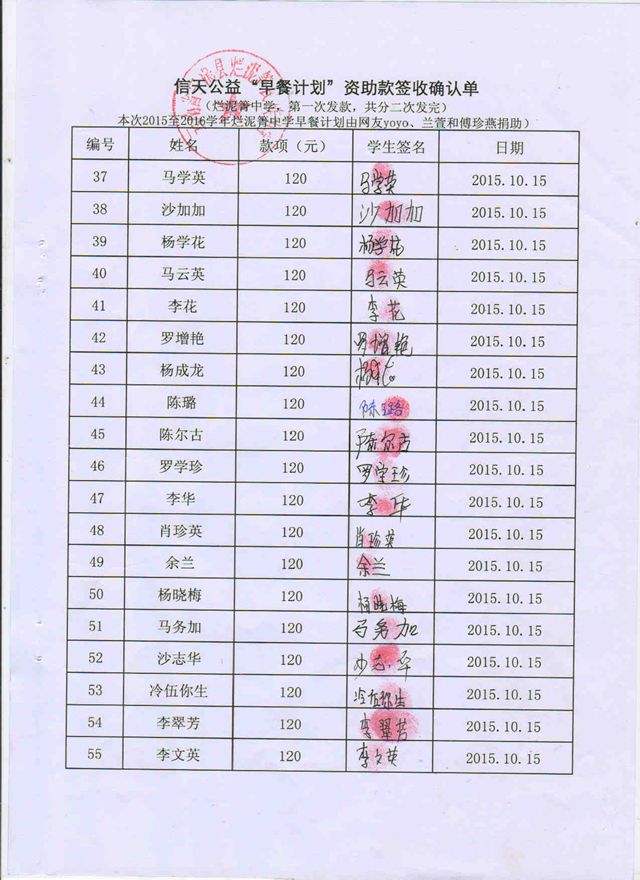 信天公益“早餐计划”资助款签收确认单
（烂泥箐中学，第一次发款，共分二次发完）
本次2015至2016学年烂泥箐中学早餐计划由网友yoyo、兰萱和傅珍燕捐助）
编号 姓名 款项（元） 学生签名 日期
37 马学英 120 马学英 2015.10.15
38 沙加加 120 沙加加 2015.10.15
39 杨学花 120 杨学花 2015.10.15
40 马云英 120 马云英 2015.10.15
41 李花 120 李花 2015.10.15
42 罗增艳 120 罗增艳 2015.10.15
43 杨成龙 120 2015.10.15
44 陈璐 120 陈璐 2015.10.15
45 陈尔古 120 陈尔古 2015.10.15
46 罗学珍 120 罗学珍 2015.10.15
47 李华 120 李华 2015.10.15
48 肖珍英 120 肖珍英 2015.10.15
49 余兰 120 余兰 2015.10.15
50 杨晓梅 120 杨晓梅 2015.10.15
51 马务加 120 马务加 2015.10.15
52 沙志华 120 沙志华 2015.10.15
53 冷伍你生 120 冷伍你生 2015.10.15
54 李翠芳 120 李翠芳 2015.10.15
55 李文英 120 李文英 2015.10.15